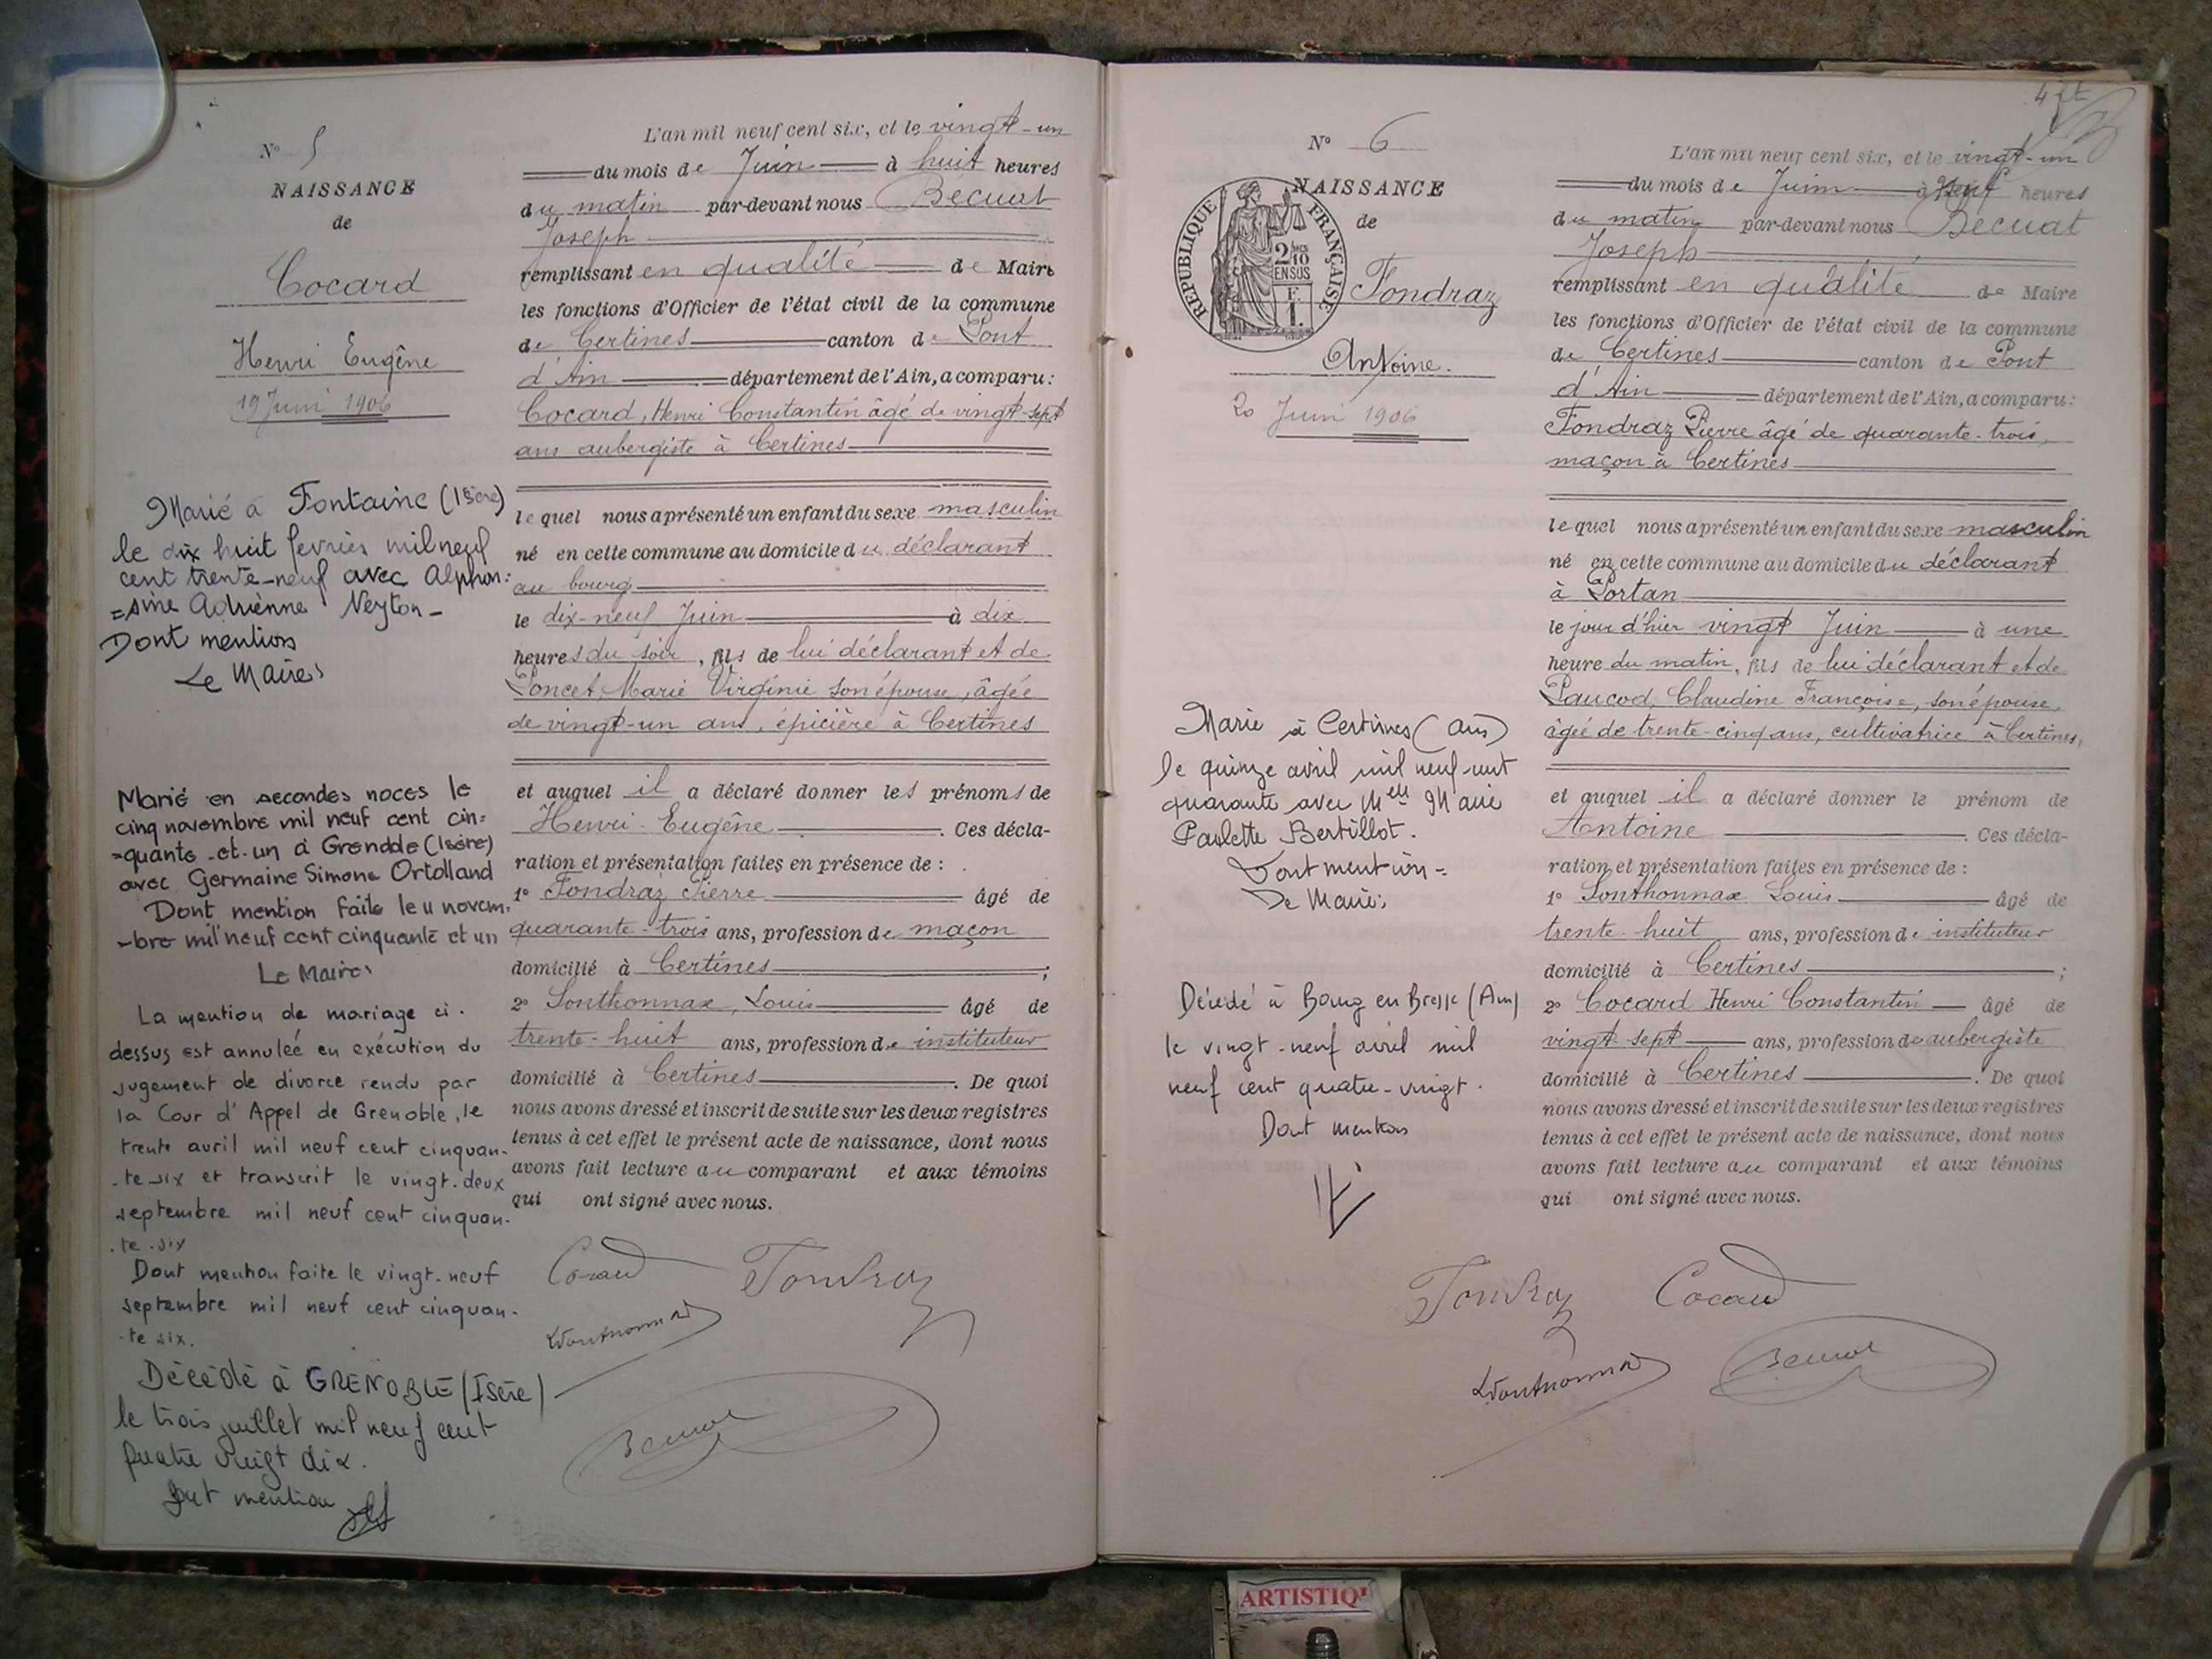 N° 5
NAISSANCE
de
Cocard
Henri Eugêne
19 Juin 1906
Marié à Fontaine (Isère)
le dix huit fevrier mil neuf
cent trente-neuf avec Alphon-
=sine Adrienne Neyton-
Dont mention
Le Maire
Marié en secondes noces le
cinq novembre mil neuf cent cin=
=quante-et-un à Grenoble (Isère)
avec Germaine Simone Ortolland
Dont mention faite le 11 novem-
-bre mil neuf cent cinquante et un
Le Maire
La mention de mariage ci-
dessus est annulée en exécution du
jugement de divorce rendu par
la Cour d'Appel de Grenoble, le
trente avril mil neuf cent cinquan-
-te six et transcrit le vingt-deux
septembre mil neuf cent cinquan-
-te-six
Dont mention faite le vingt-neuf
septembre mil neuf cent cinquan-
-te six.
Décédé à GRENOBLE (Isère)
le trois juillet mil neuf cent
quatre vingt dix.
Dont mention
L'an mil neuf cent six, et le vingt-un
du mois de Juin à huit heures
du matin par-devant nous Becuat
Joseph
remplissant en qualité de Maire
les fonctions d'Officier de l'état civil de la commune
de Certines canton de Pont
d'Ain département de l'Ain, a comparu:
Cocard, Henri Constantin âgé de vingt-sept
ans aubergiste à Certines
lequel nous a présenté un enfant du sexe masculin
né en cette commune au domicile du déclarant
au bourg
le dix-neuf Juin à dix
heures du soir, fils de lui déclarant et de
Poncet, Marie Virginie son épouse, âgée
de vingt-un ans, épicière à Certines
et auquel il a déclaré donner les prénoms de
Henri-Eugêne. Ces décla-
ration et présentation faites en présence de:
1° Fondraz Pierre âgé de
quarante-trois ans, profession de maçon
domicilié à Certines;
2° Sonthonnax, Louis âgé de
trente-huit ans, profession de instituteur
domicilié à Certines. De quoi
nous avons dressé et inscrit de suite sur les deux registres
tenus à cet effet le présent acte de naissance, dont nous
avons fait lecture au comparant et aux témoins
qui ont signé avec nous.
Cocard Fondraz
LSonthonnax
Becuat
4
N° 6
NAISSANCE
de
REPUBLIQUE FRANÇAISE
2/10 EN SUS
F.
1.
Fondraz
Antoine.
20 Juin 1906
Marié à Certines (Ain)
le quinze avril mil neuf cent
quarante avec Melle Marie
Paulette Bertillot.
Dont mention-
Le Maire
Décédé à Bourg en Bresse (Ain)
le vingt-neuf avril mil
neuf cent quatre-vingt.
Dont mention
L'an mil neuf cent six, et le vingt-un
du mois de Juin à neuf heures
du matin par-devant nous Bécuat
Joseph
remplissant en qualité de Maire
les fonctions d'Officier de l'état civil de la commune
de Certines canton de Pont
d'Ain département de l'Ain, a comparu:
Fondraz Pierre âgé de quarante-trois,
maçon à Certines
lequel nous a présenté un enfant du sexe masculin
né en cette commune au domicile du déclarant
à Portan
le jour d'hier vingt Juin à une
heure du matin, fils de lui déclarant et de
Paucod, Claudine Françoise, son épouse,
âgée de trente-cinq ans, cultivatrice à Certines,
et auquel il a déclaré donner le prénom de
Antoine. Ces décla-
ration et présentation faites en présence de:
1° Sonthonnax Louis âgé de
trente-huit ans, profession de instituteur
domicilié à Certines;
2° Cocard Henri Constantin âgé de
vingt-sept ans, profession de aubergiste
domicilié à Certines. De quoi
nous avons dressé et inscrit de suite sur les deux registres
tenus à cet effet le présent acte de naissance, dont nous
avons fait lecture au comparant et aux témoins
qui ont signé avec nous.
Fondraz Cocard
LSonthonnax Becuat
ARTISTIQ